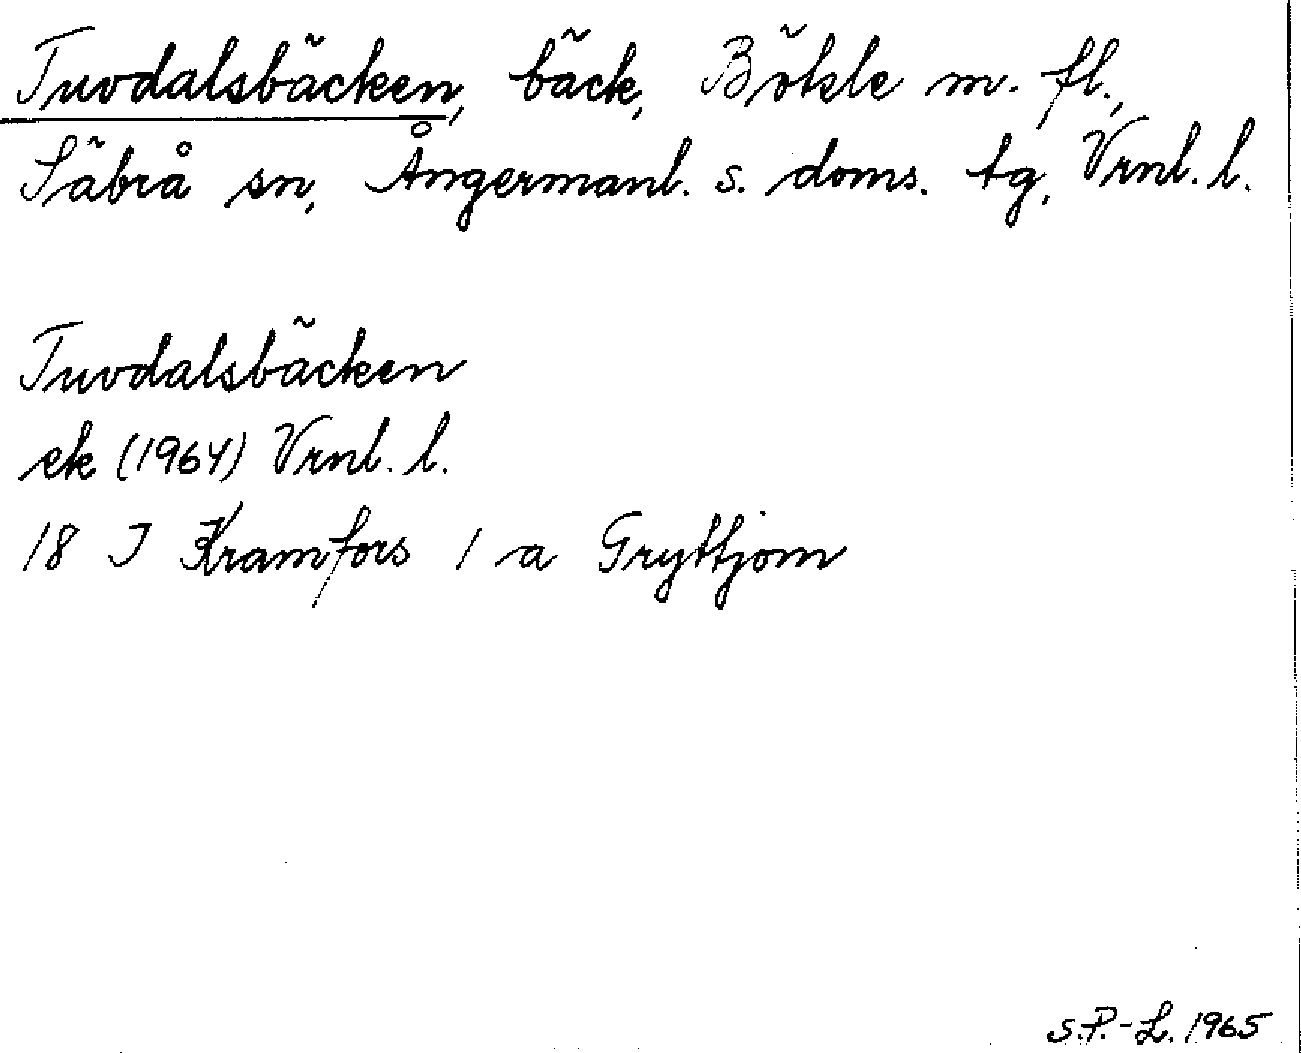 Tuvdalsbäcken, bäck, Bölsle m. fl.,
Säbrå sn, Ångermanl. s. doms. tg, Vrnl. l.
Tuvdalsbäcken
ek (1964) Vrnl. l.
18 I Kramfors 1 a Gryttjom
S.P.-L. 1965